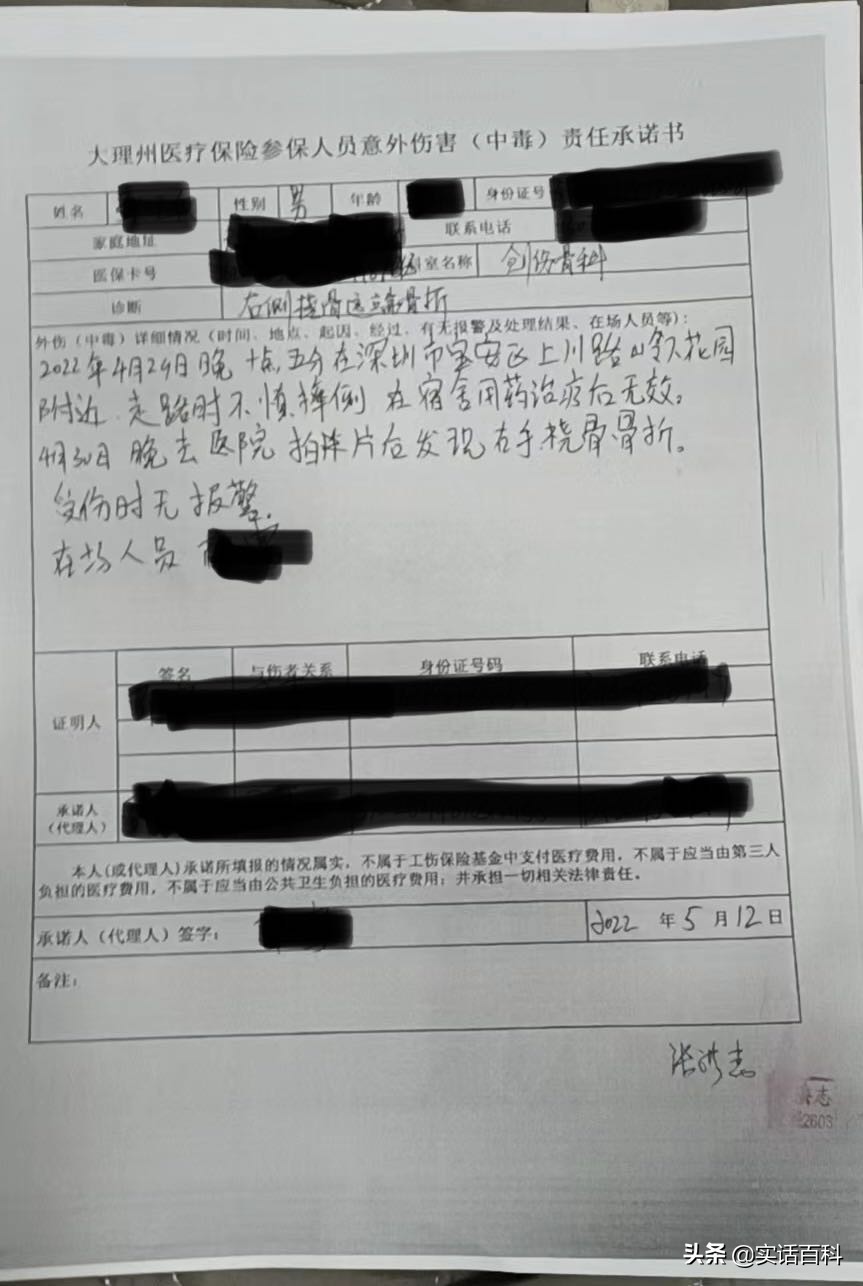 大理州医疗保险参保人员意外伤害（中毒）责任承诺书
姓名 性别 男 年龄 身份证号
家庭地址 联系电话
医保卡号 室名称 创伤骨科
诊断 右侧桡骨远端骨折
外伤（中毒）详细情况（时间、地点、起因、经过、有无报警及处理结果、在场人员等）：
2022年4月29日晚十点五分在深圳市宝安区上川路 花园
附近 走路时不慎摔倒 在宿舍用药治疗后无效。
4月30日 晚去医院 拍 片后发现右手桡骨骨折。
受伤时无报警
在场人员
签名 与伤者关系 身份证号码 联系电话
证明人
承诺人
（代理人）
本人(或代理人)承诺所填报的情况属实，不属于工伤保险基金中支付医疗费用，不属于应当由第三人
负担的医疗费用，不属于应当由公共卫生负担的医疗费用；并承担一切相关法律责任。
承诺人（代理人）签字： 2022 年 5 月 12 日
备注：
志
2603
头条 @实话百科